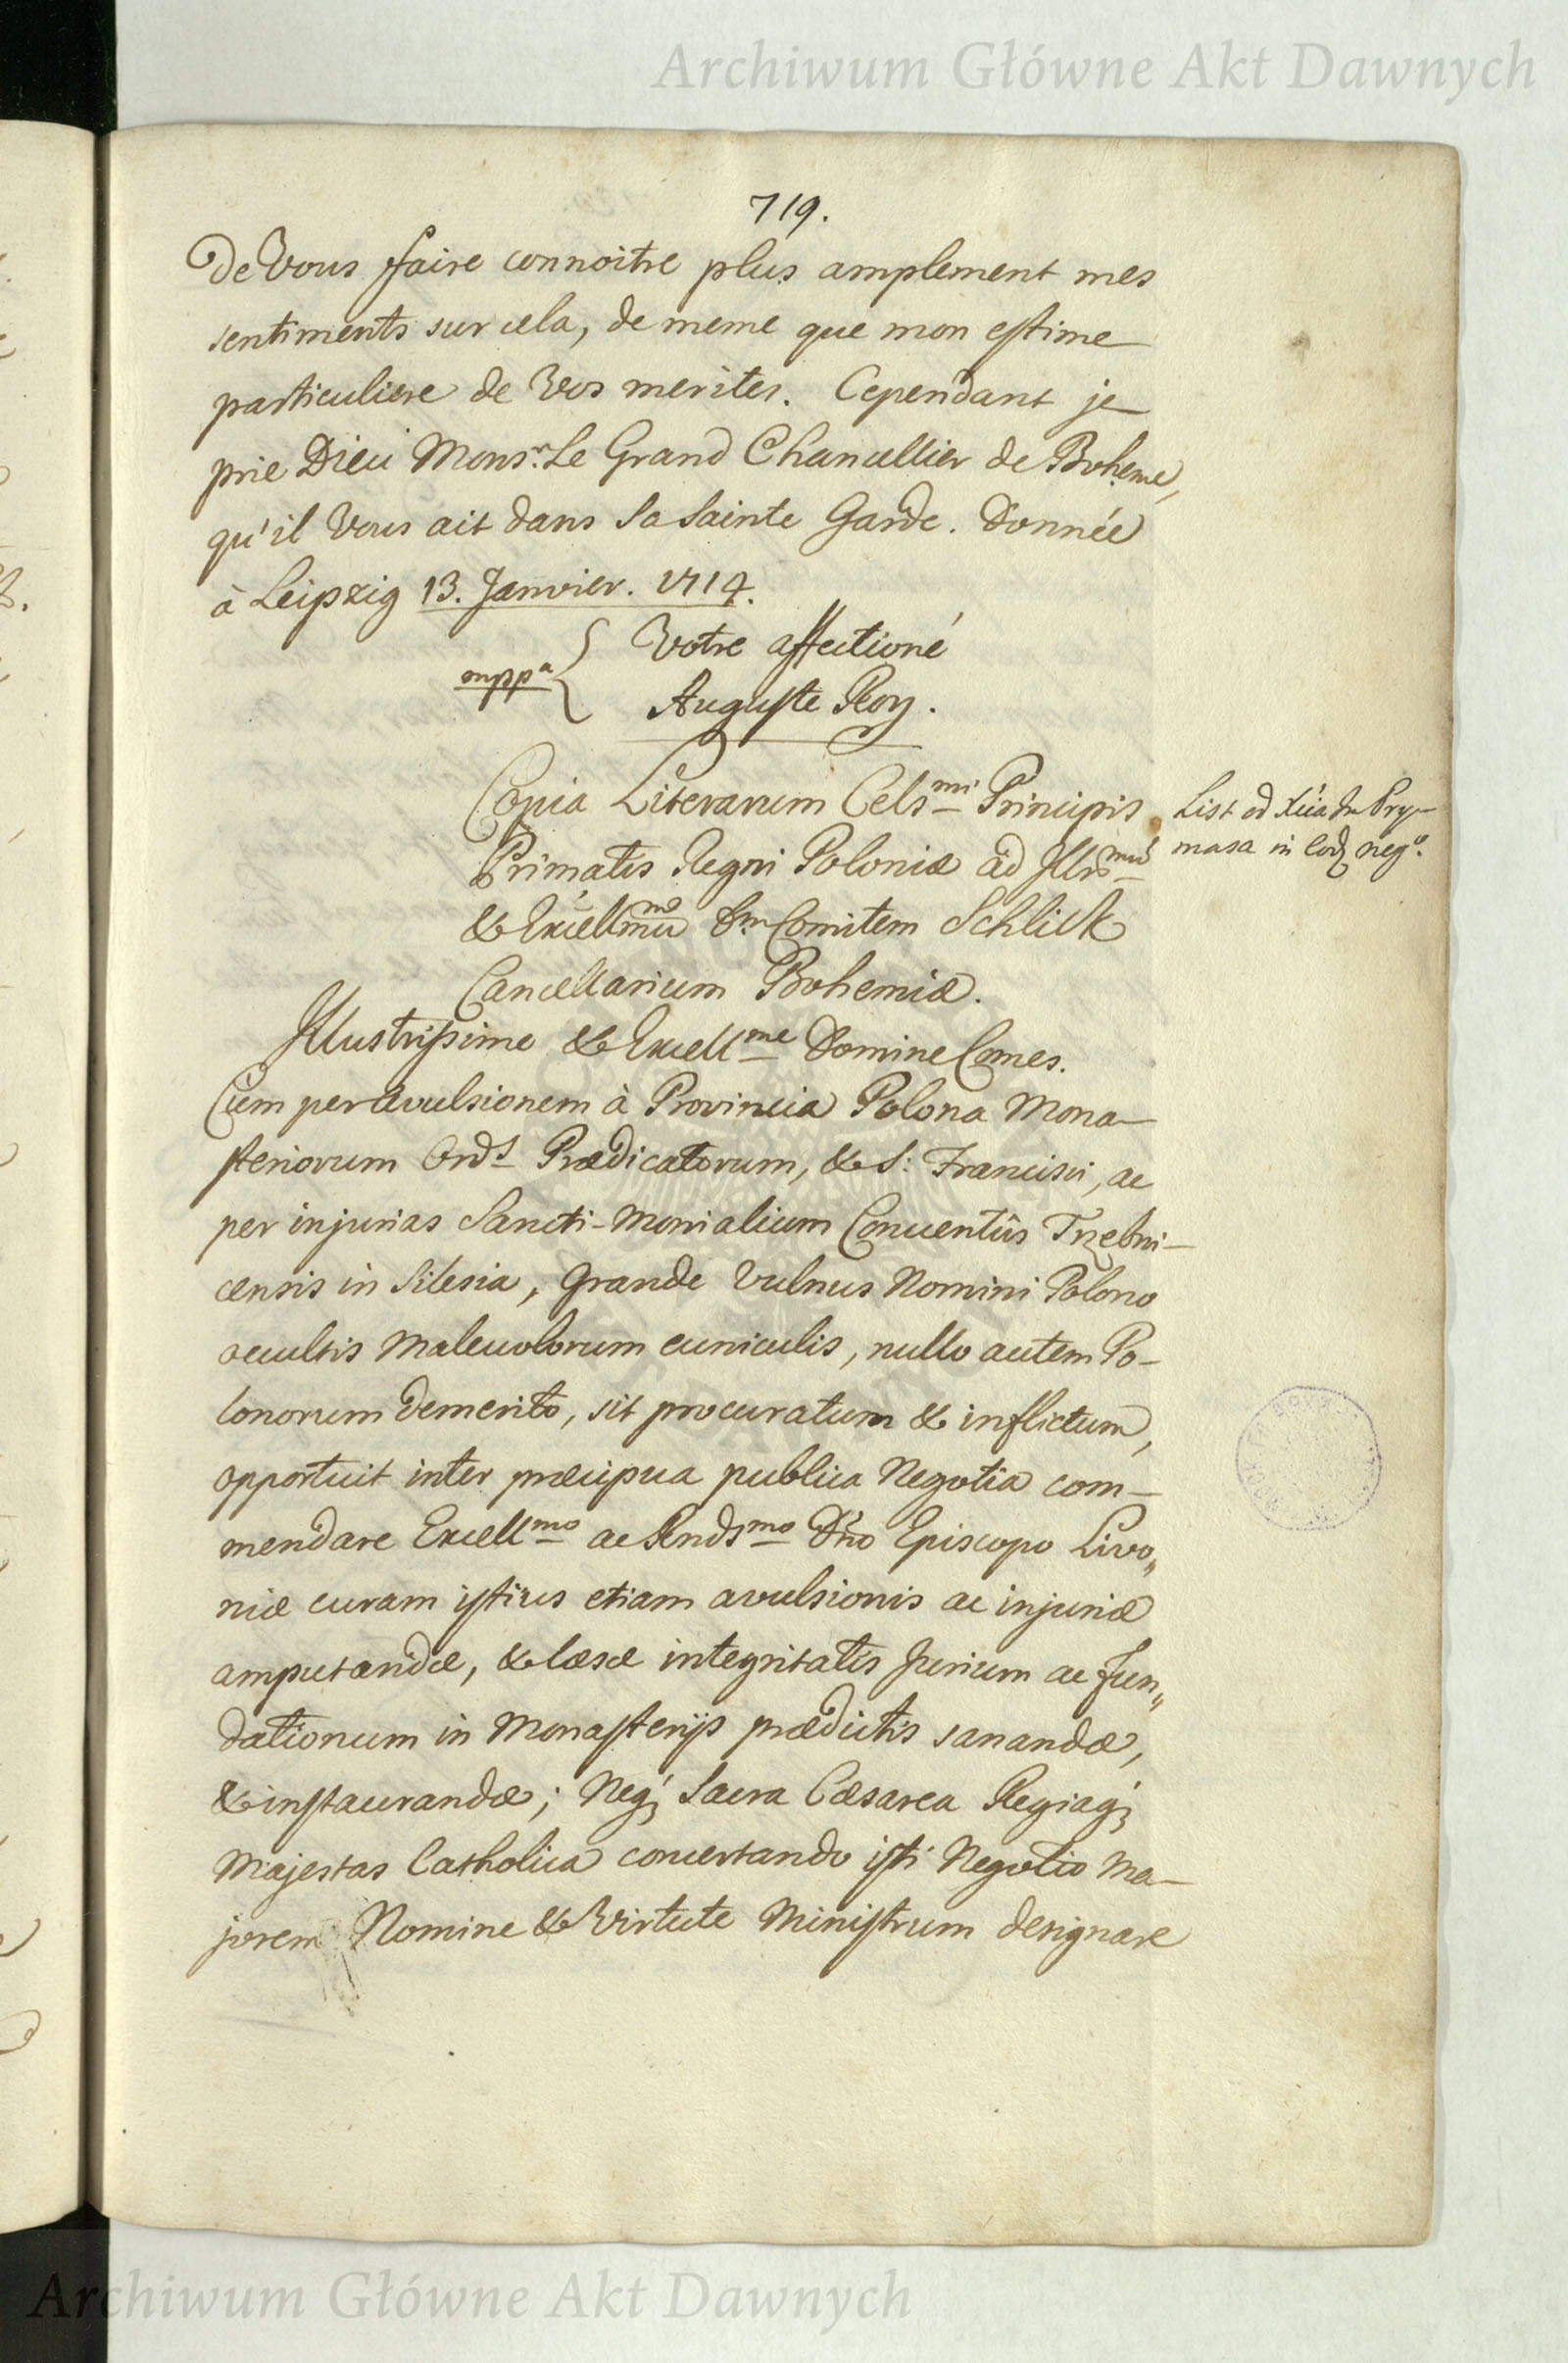 Archiwum Główne Akt Dawnych
719.
de Vous ffaire connoitre plus amplement mes
sentiments sur cela, de meme que mon estime
particuliere de Vos merites. Cependant je
prie Dieu Monsr. Le Grand Chancellier de Boheme,
qu'il Vous ait dans Sa Sainte Garde. Donnée
à Leipzig 13. Janvier. 1714.
Votre affectioné
mppa
Auguste Roy.
Copia Literarum Celsmi Principis
Primatis Regni Poloniæ ad Illrmũ
& Excellmũ Dm Comitem Schlick
Cancellarium Bohemiæ.
List od Xcia Jm Pry-
masa in eod neg°.
Illustrissime & Excellme Domine Comes.
Cùm per avulsionem à Provincia Polona Mona-
steriorum Ords Prædicatorum, & S: Francisci, ac
per injurias Sancti-Monialium Conventûs Trzebni-
censis in Silesia, grande Vulnus Nomini Polono
occultis Malevolorum cuniculis, nullo autem Po-
lonorum demerito, sit procuratum & inflictum,
opportuit inter præcipua publica Negotia com-
mendare Excellmo ac Rndsmo Dno Episcopo Livo„
niæ curam istius etiam avulsionis ac injuriæ
amputandæ, & læsæ integritatis Jurium ac Fun„
dationum in Monasterijs prædictis sanandæ,
& instaurandæ; Neq; Sacra Cæsarea Regiaq;
Majestas Catholica concertando isti Negotio Ma-
jorem Nomine & Virtute Ministrum designare
Archiwum Główne Akt Dawnych